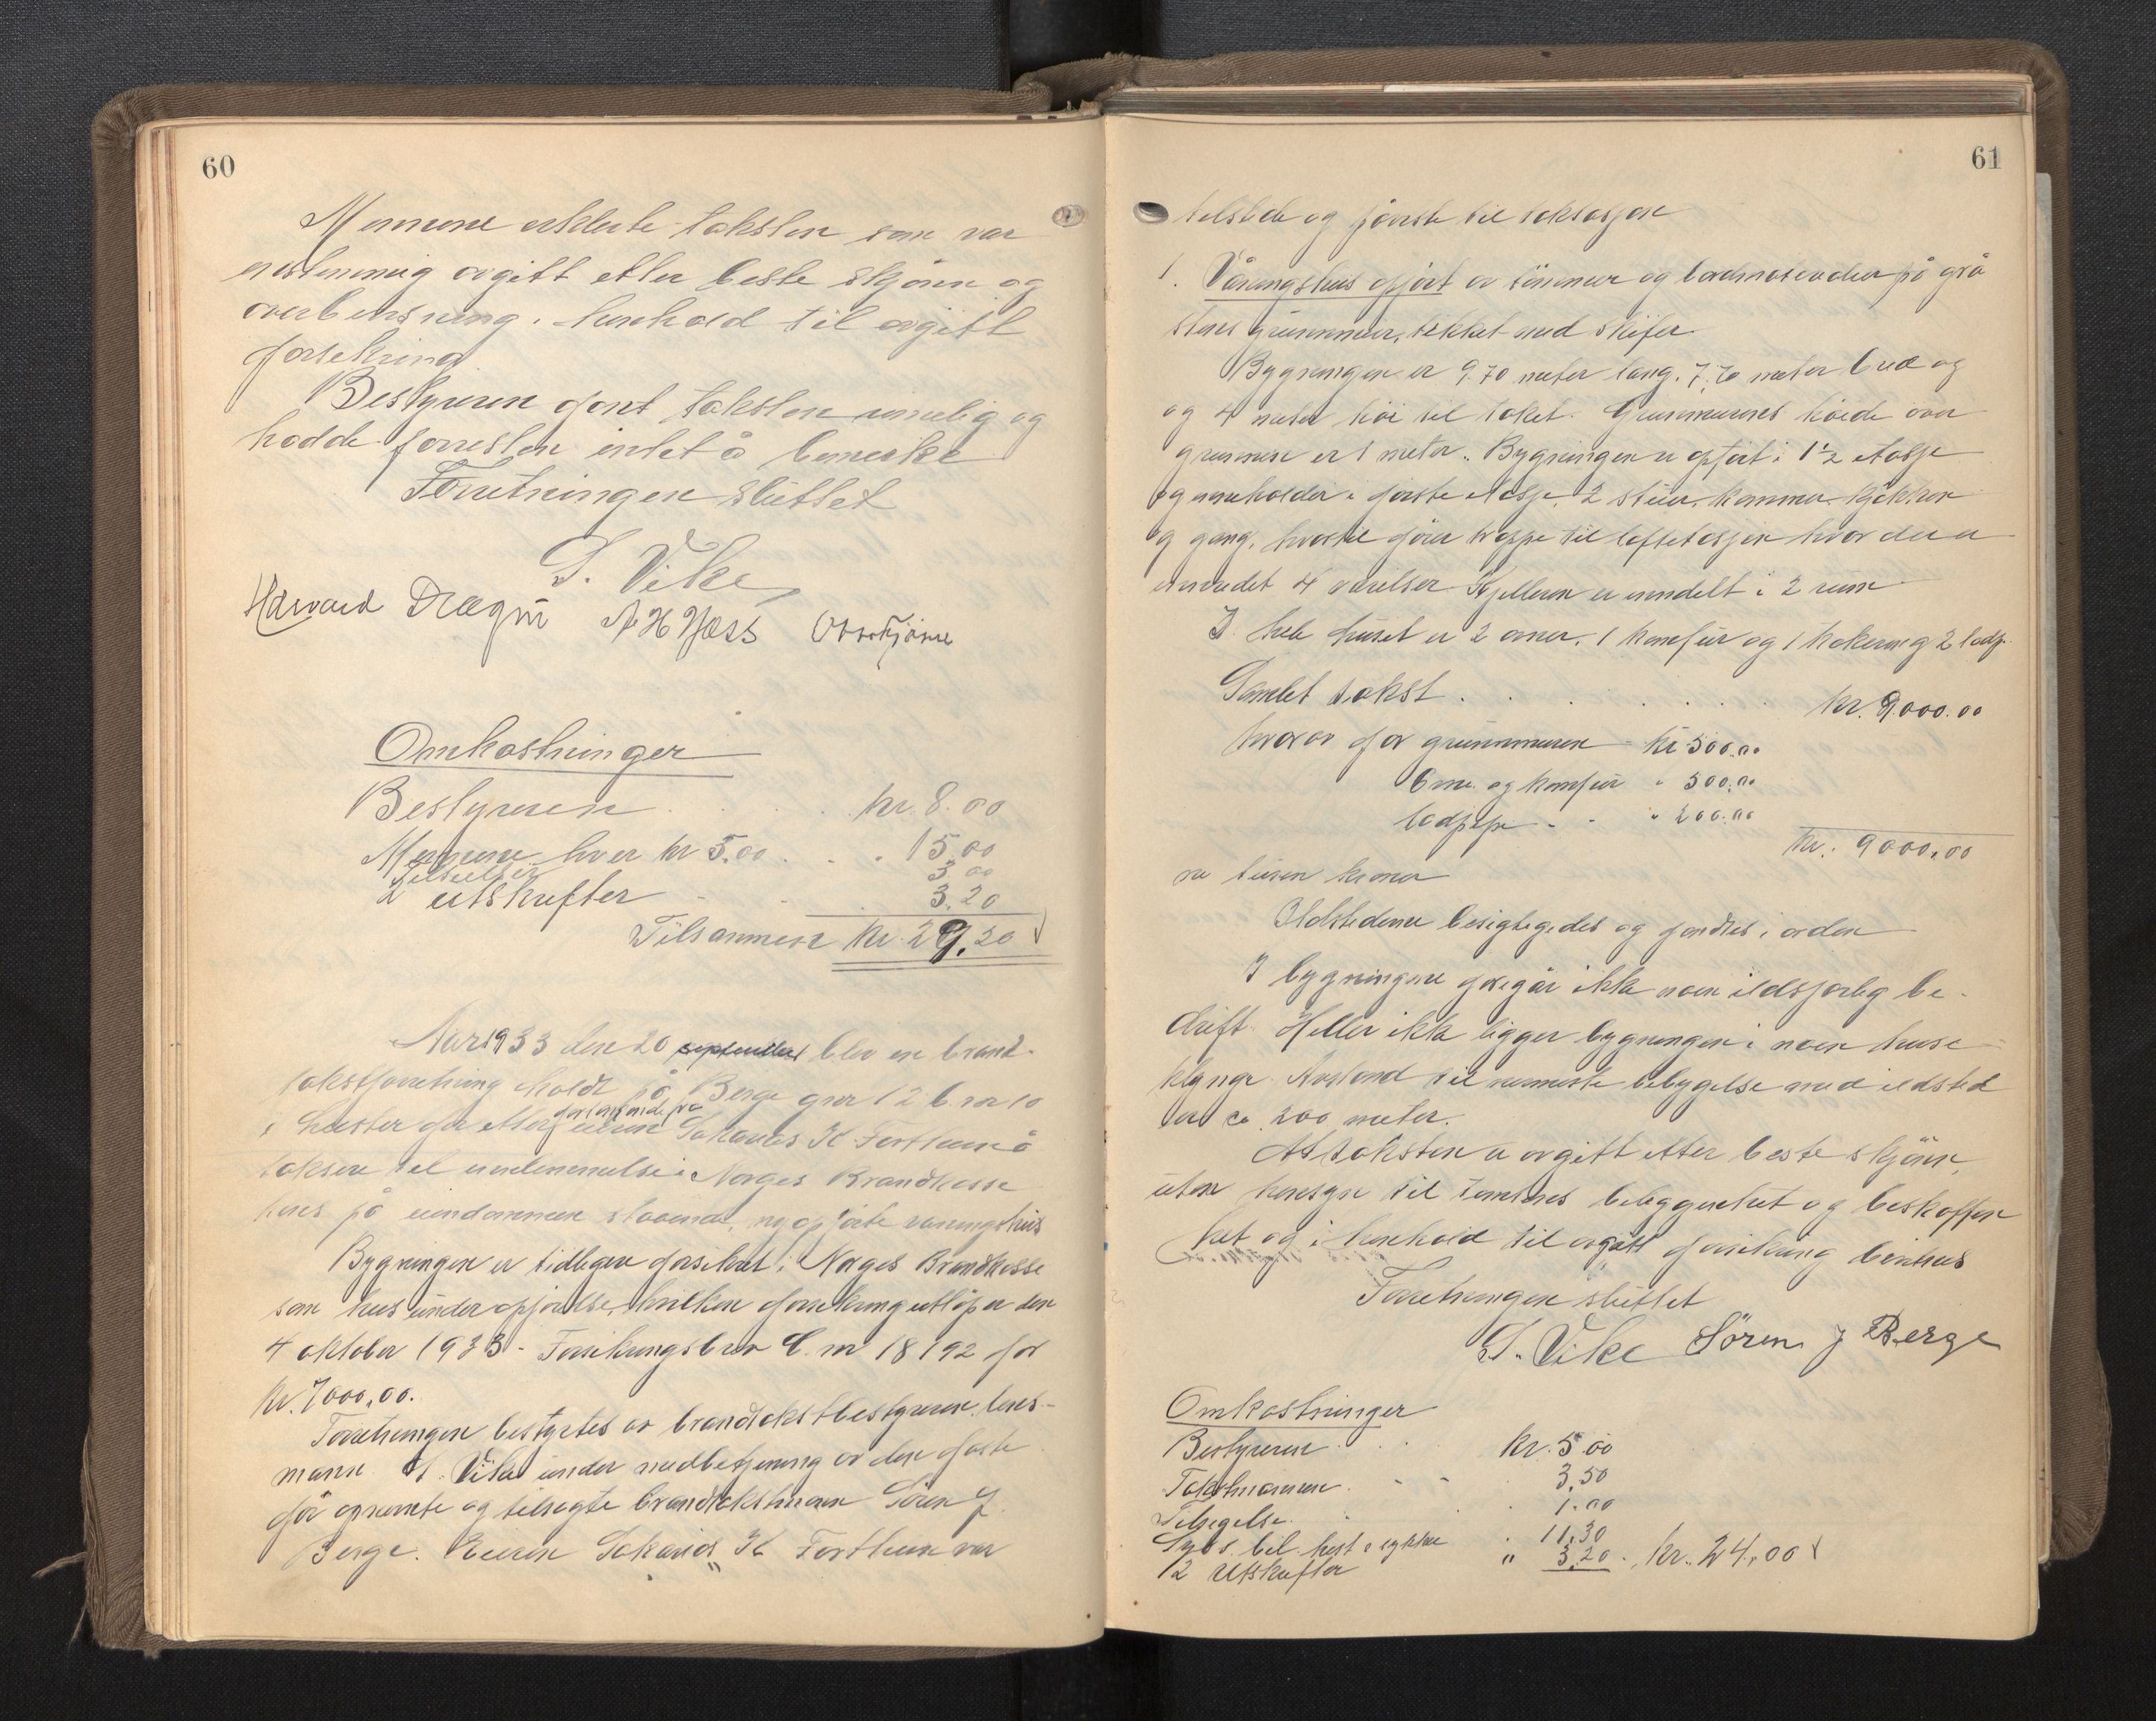 60
Mennene erklærte taksten som var
enstemmig avgitt etter beste skjønn og
overbevisning i henhold til avgitt
forsikring
Bestyreren fant taksten rimelig og
hadde forresten intet å bemerke
Forretningen sluttet
S. Vike
Havard Drægni A H Hess
Omkostninger
Bestyreren . . . kr. 8.00
Mennene hver kr 5.00 . . . 15.00
Tilsielser 3.00
2 utskrifter . . . 3.20
Tilsammen kr. 29.20
Aar 1933 den 20 september blev en brand-
takstforretning holdt på Berge gnr 12 b.nr 10
i Luster for etter forlangende fra eieren Sakarias K Forthun å
taksere til innlemmelse i Norges Brandkasse
hans på eiendommen stående, nyopførte våningshus
Bygningen er tidligere forsikret i Norges Brandkasse
som hus under opførelse, hvilken forsikring utløper den
4 oktober 1933 - Forsikringsbrev C. nr 18192 for
kr. 7000,00.
Forretningen bestyrtes av brandtakstbestyreren lens-
mann S. Vike under medbetjening av den faste
før opnevnte og tilsagte brandtakstmann Sören J.
Berge. Eieren Sakarias K Forthun var
61
tilstede og påviste til taksasjon
1. Våningshus opført av tømmer og bordmaterialer på grå
stens grunnmur, tekket med skifer
Bygningen er 9.70 meter lang, 7,70 meter bred og
og 4 meter høi til taket. Grunnmurens høide over
grunnen er 1 meter. Bygningen er opført i 1½ etasje
og inneholder i første etasje 2 stuer, kammer, kjøkken
og gang, hvortil fører trappe til loftetasjen hvor der er
innredet 4 værelser Kjelleren er inndelt i 2 rum
I hele huset er 2 ovner, 1 komfur og 1 bakerovn g 2 ladp.
Samlet takst . . . . . kr. 9000.00
hvorav for grunnmuren kr 500.00
Ovne og komfur " 300.00
ladpipe - - " 200.00
kr. 9000,00
ni tusen kroner
Ildstedene besigtigedes og fandtes i orden
I bygningene foregår ikke noen ildsfarlig be-
drift. Heller ikke ligger bygningen i noen huse
klynge. Avstand til nærmeste bebygelse med ildsted
er ca 200 meter.
At taksten er avgitt etter beste skjønn,
uten hensyn til tomtens beliggenhet og beskaffen
het og i henhold til avgitt forsikring
Forretningen sluttet
S. Vike Sören J Berge
Omkostninger
Bestyreren . . . kr. 5.00
Takstmannen . - - 3,50
Tilsigelse . . . 1.00
bil. hest o sykkel . 11,30
2 utskrifter " 3.20. kr. 24,00